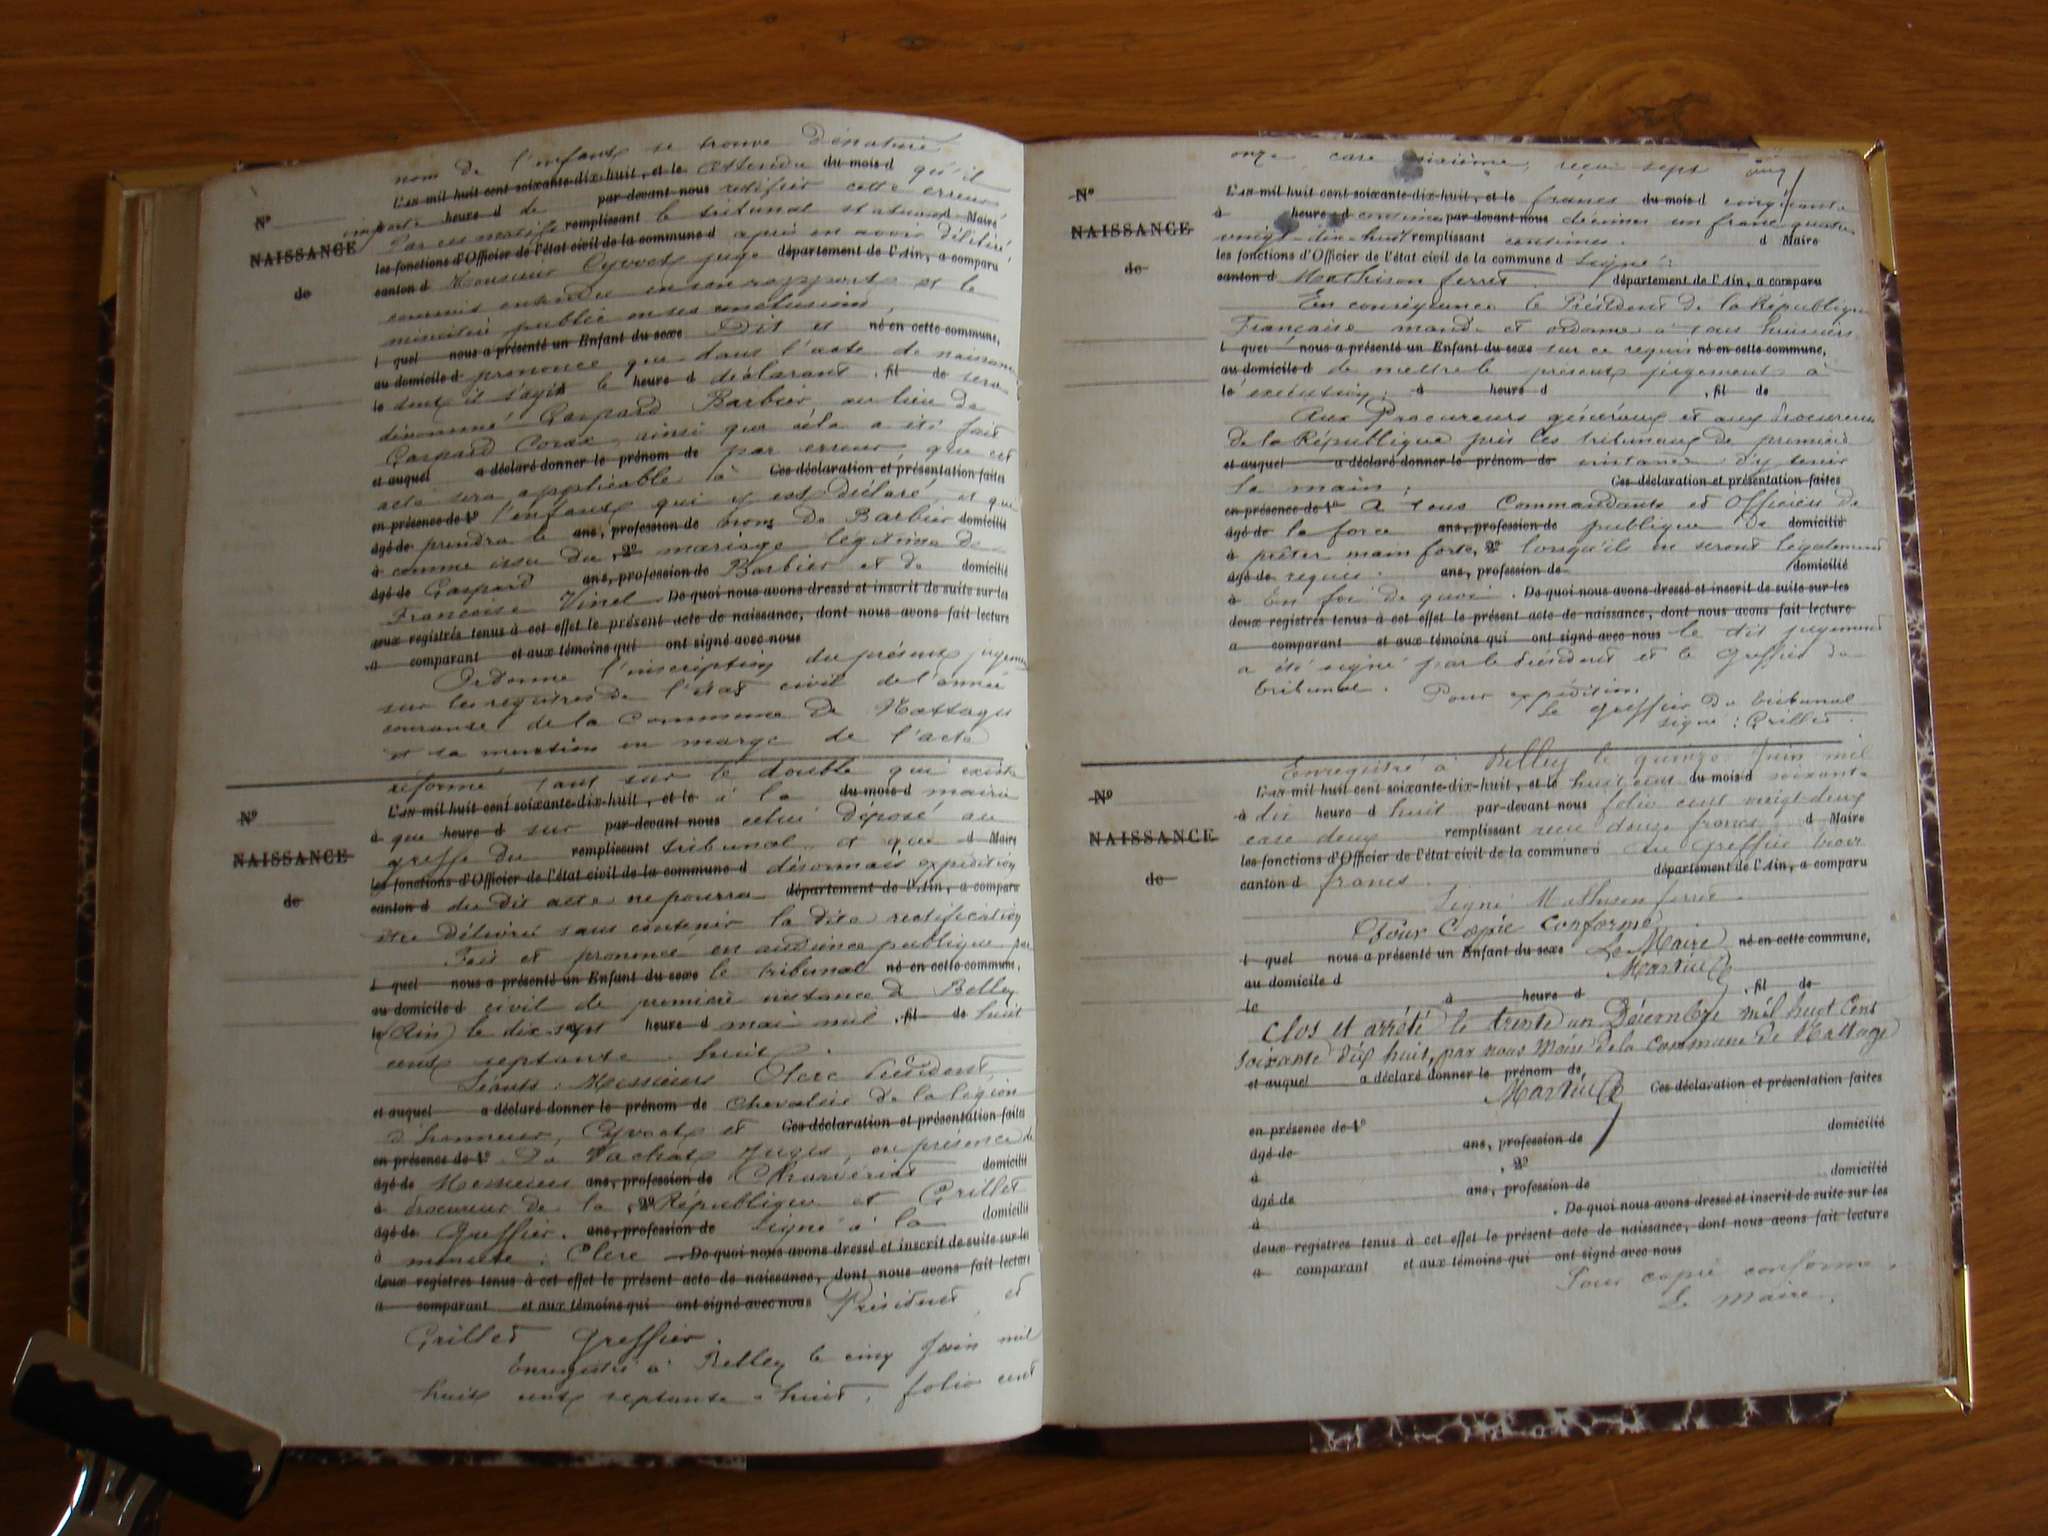 nom de l'enfant se trouve dénaturé
L'an mil huit cent soixante-dix-huit, et le attendu du mois d qu'il
N° importe heure d de par-devant nous rectifier cette erreur
Par ces motifs remplissant le tribunal statuant d Maire
NAISSANCE les fonctions d'Officier de l'état civil de la commune d après en avoir délibéré
de canton d Monsieur Cyvoct juge département de l'Ain, a comparu
commis entendu en son rapport et le
ministère public en ses conclusions,
l quel nous a présenté un Enfant du sexe Dit et né en cette commune,
au domicile d prononce que dans l'acte de naissance
le dont il s'agit le heure d déclarant , fil de sera
dénommé Gaspard Barbier, au lieu de
Gaspard ainsi que cela a été fait
et auquel a déclaré donner le prénom de par erreur, que cet
acte sera applicable à Ces déclaration et présentation faites
en présence de 1° l'enfant qui y est déclaré, et qui
âgé de prendra le ans, profession de nom de Barbier domicilié
à comme issu du , 2° mariage légitime de
âgé de Gaspard ans, profession de Barbier et de domicilié
Françoise Vinel De quoi nous avons dressé et inscrit de suite sur les
deux registres tenus à cet effet le présent acte de naissance, dont nous avons fait lecture
a comparant et aux témoins qui ont signé avec nous
Ordonne l'inscription du présent jugement
sur les registres de l'état civil de l'année
courante de la Commune de Nattages
et sa mention en marge de l'acte
réformé tant sur le double qui existe
N° L'an mil huit cent soixante-dix-huit, et le à la du mois d mairie
à que heure d sur par-devant nous celui déposé au
greffe du remplissant tribunal et que d Maire
NAISSANCE les fonctions d'Officier de l'état civil de la commune d désormais expédition
de canton d du dit acte ne pourra département de l'Ain, a comparu
être délivré sans contenir la dite rectification
Fait et prononcé en audience publique par
l quel nous a présenté un Enfant du sexe le tribunal né en cette commune,
au domicile d civil de première instance de Belley
le (Ain) le dix-sept heure d mai mil , fil de huit
cent septante huit.
Séants : Messieurs Clerc Président,
et auquel a déclaré donner le prénom de Chevalier de la légion
d'honneur, Cyvoct et Ces déclaration et présentation faites
en présence de 1° Du Vachat Juges, en présence de
âgé de Messieurs ans, profession de Charvériat domicilié
à Procureur de la , 2° République et Grillet
âgé de Greffier. ans, profession de Signé à la domicilié
à minute : Clerc De quoi nous avons dressé et inscrit de suite sur les
deux registres tenus à cet effet le présent acte de naissance, dont nous avons fait lecture
a comparant et aux témoins qui ont signé avec nous Président et
Grillet Greffier.
Enregistré à Belley le cinq Juin mil
huit cent septante-huit, folio cent
onze case sixième, reçu sept
N° L'an mil huit cent soixante-dix-huit, et le francs du mois d cinquante
à heure d centimes par-devant nous décimes un franc quatre
NAISSANCE vingt-dix-huit remplissant centimes. d Maire
les fonctions d'Officier de l'état civil de la commune d Signé :
de canton d Mathison ferret. département de l'Ain, a comparu
En conséquence le Président de la République
Française mande et ordonne à tous huissiers
l quel nous a présenté un Enfant du sexe sur ce requis né en cette commune,
au domicile d de mettre le présent jugement à
le exécution, à heure d , fil de
Aux Procureurs généraux et aux Procureurs
de la République près les tribunaux de première
et auquel a déclaré donner le prénom de instance d'y tenir
la main; Ces déclaration et présentation faites
en présence de 1° A tous Commandants et Officiers de
âgé de la force ans, profession de publique de domicilié
à prêter main forte, 2° lorsqu'ils en seront légalement
âgé de requis. ans, profession de domicilié
à En foi de quoi . De quoi nous avons dressé et inscrit de suite sur les
deux registres tenus à cet effet le présent acte de naissance, dont nous avons fait lecture
a comparant et aux témoins qui ont signé avec nous le dit jugement
a été signé par le Président et le Greffier du
tribunal. Pour expédition,
Le greffier du tribunal
signé : Grillet.
Enregistré à Belley le quinze Juin mil
N° L'an mil huit cent soixante-dix-huit, et le huit cent du mois d soixante
à dix heure d huit par-devant nous folio cent vingt-deux
case deux remplissant reçu douze francs d Maire
NAISSANCE les fonctions d'Officier de l'état civil de la commune d Au greffier trois
de canton d francs. département de l'Ain, a comparu
Signé Mathison ferret.
Pour Copie Conforme
l quel nous a présenté un Enfant du sexe Le Maire né en cette commune,
au domicile d
le à heure d , fil de
Clos et arrêté le trente un Décembre mil huit Cent
soixante dix huit, par nous Maire de la Commune de Nattages
et auquel a déclaré donner le prénom de Ces déclaration et présentation faites
en présence de 1° domicilié
âgé de ans, profession de
à , 2° domicilié
âgé de ans, profession de
à . De quoi nous avons dressé et inscrit de suite sur les
deux registres tenus à cet effet le présent acte de naissance, dont nous avons fait lecture
a comparant et aux témoins qui ont signé avec nous
Pour copie conforme,
Le Maire,